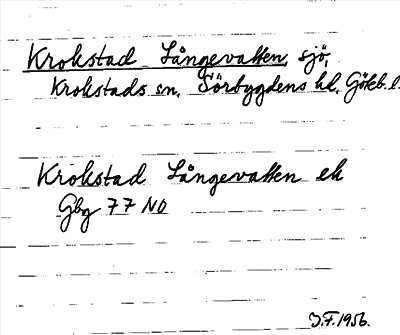 Krokstad Långevatten, sjö,
Krokstads sn. Sörbygdens hd. Göteb. l.
Krokstad Långevatten ek
Gbg 77 NO
J.F. 1956.